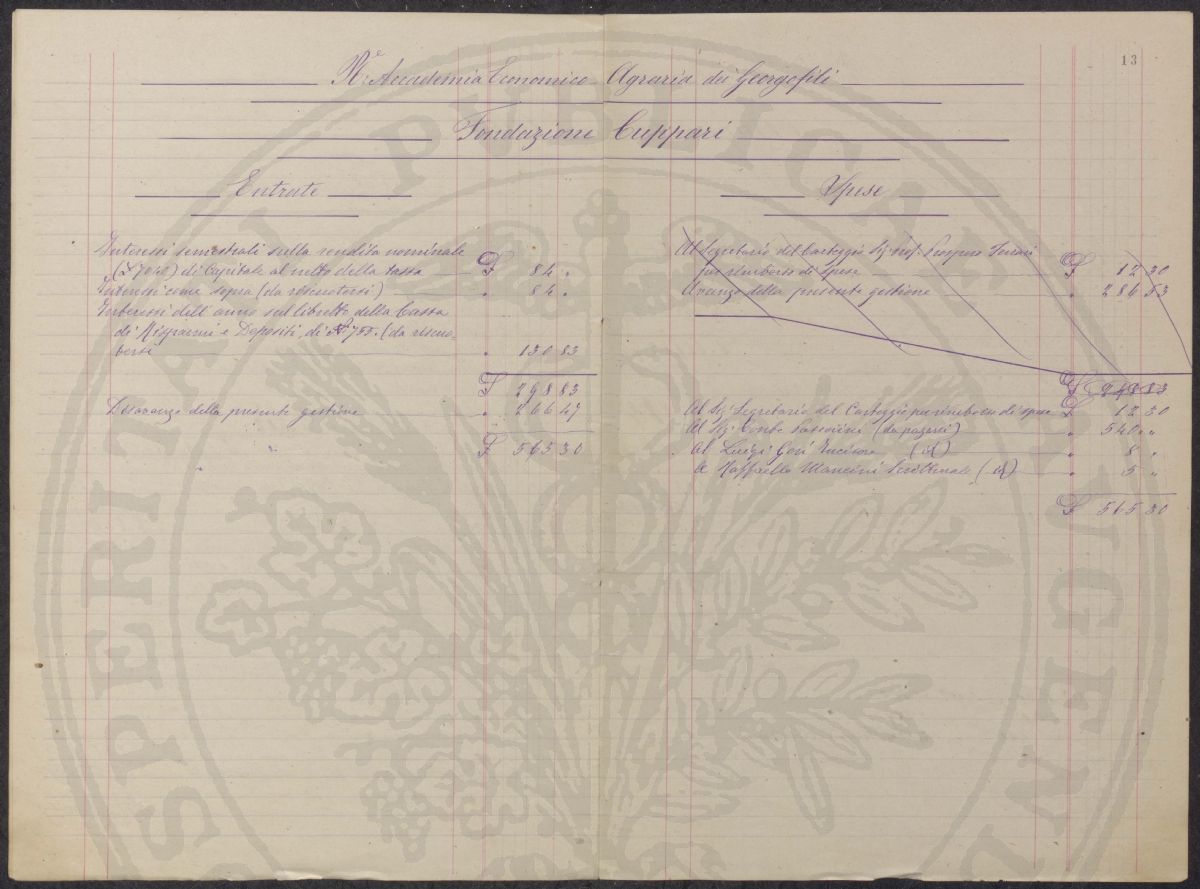 13
R.e Accademia Economico-Agraria dei Georgofili
Fondazione Cuppari
Entrate
Interessi semestrali sulla rendita nominale
di Capitale al netto della tassa £ 84 "
Interessi come sopra (da riscuotersi) " 84 "
Interessi dell'anno sul libretto della Cassa
di Risparmi e Depositi, di (da riscuo-
tersi " 130 83
£ 298 83
Disavanzo della presente gestione " 266 47
£ 565 30
Spese
Al Segretario del Carteggio Sig. Prof.
per rimborso di Spese £ 12 30
Avanzo della presente gestione " 286 53
£ 298 83
Al Sig. Segretario del Carteggio per rimborso di spese £ 12 30
Al Sig. Conte (da pagarsi) " 540 "
Al Luigi Incisore (id) " 8 "
A Raffaello Mancini (id) " 5 "
£ 565 30
SPERITATI PVBLICAE AVGEN